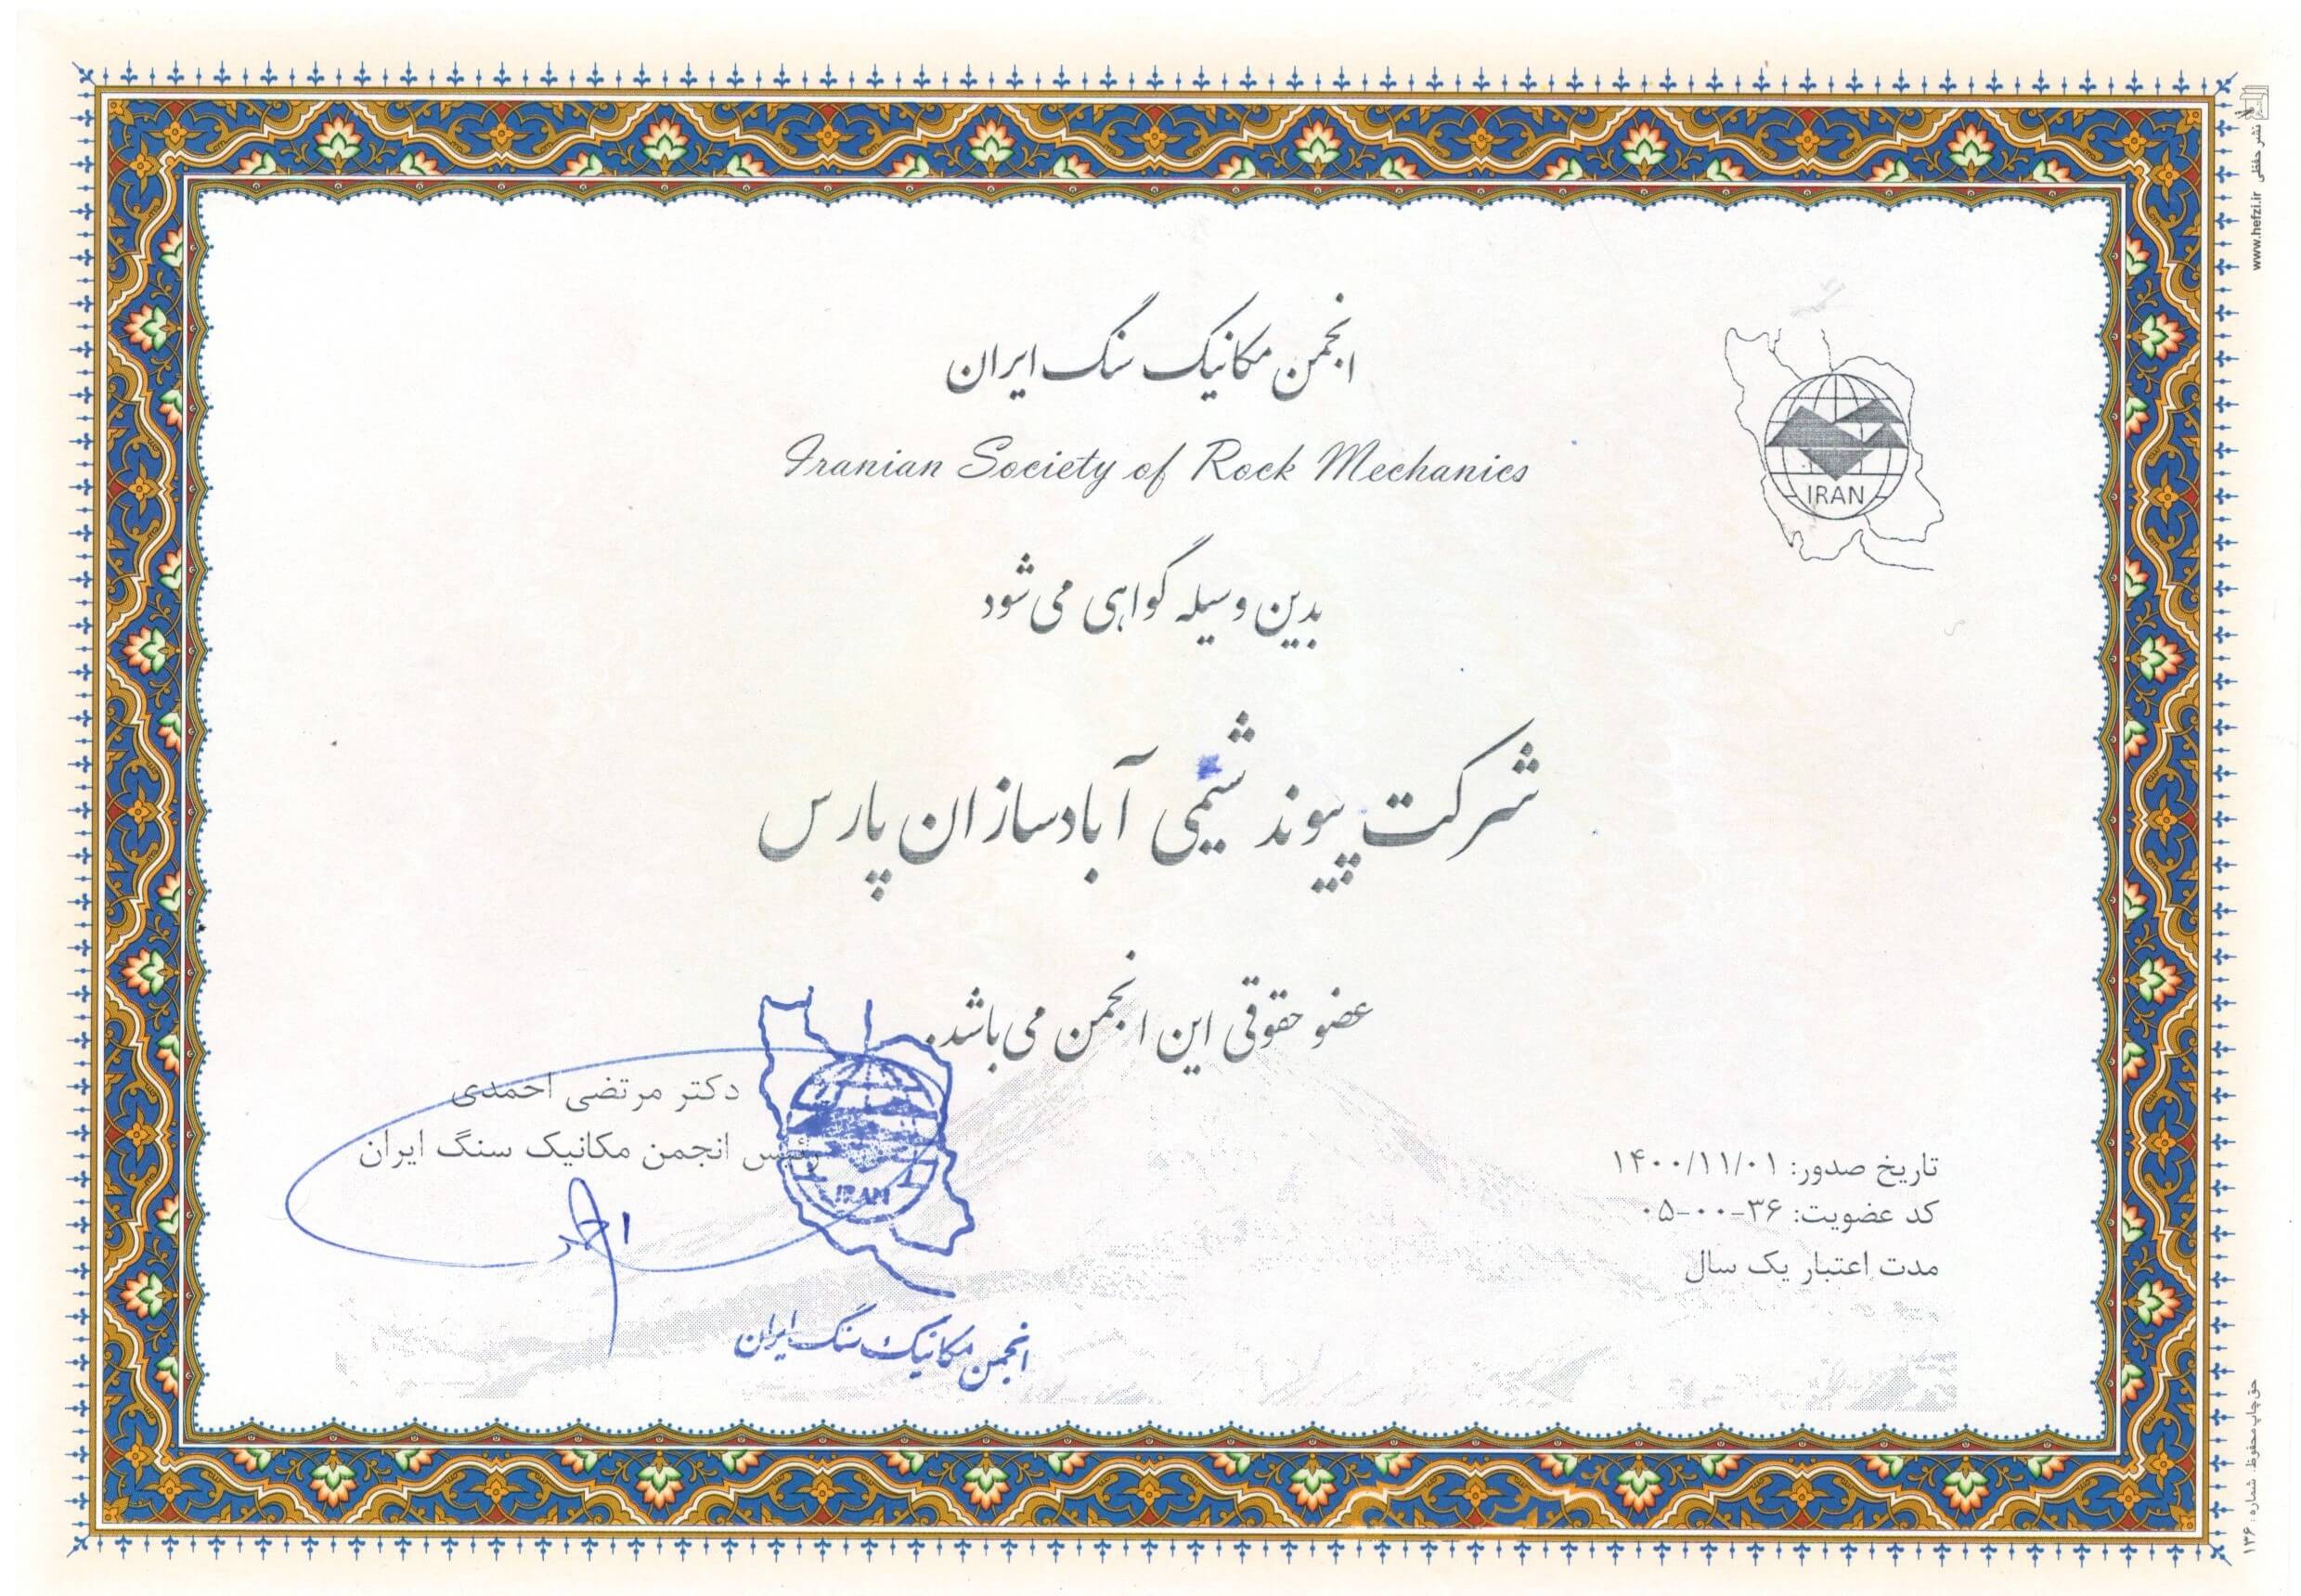 انجمن مکانیک سنگ ایران
Iranian Society of Rock Mechanics
IRAN
بدین وسیله گواهی می شود
شرکت پیوند شیمی آبادسازان پارس
عضو حقوقی این انجمن می باشد.
دکتر مرتضی احمدی
رئیس انجمن مکانیک سنگ ایران
IRAN
انجمن مکانیک سنگ ایران
تاریخ صدور: ۱۴۰۰/۱۱/۰۱
کد عضویت: ۳۶-۰۰-۰۵
مدت اعتبار یک سال
نشر حفظی www.hefzi.ir
حق چاپ محفوظ شماره: ۱۳۶